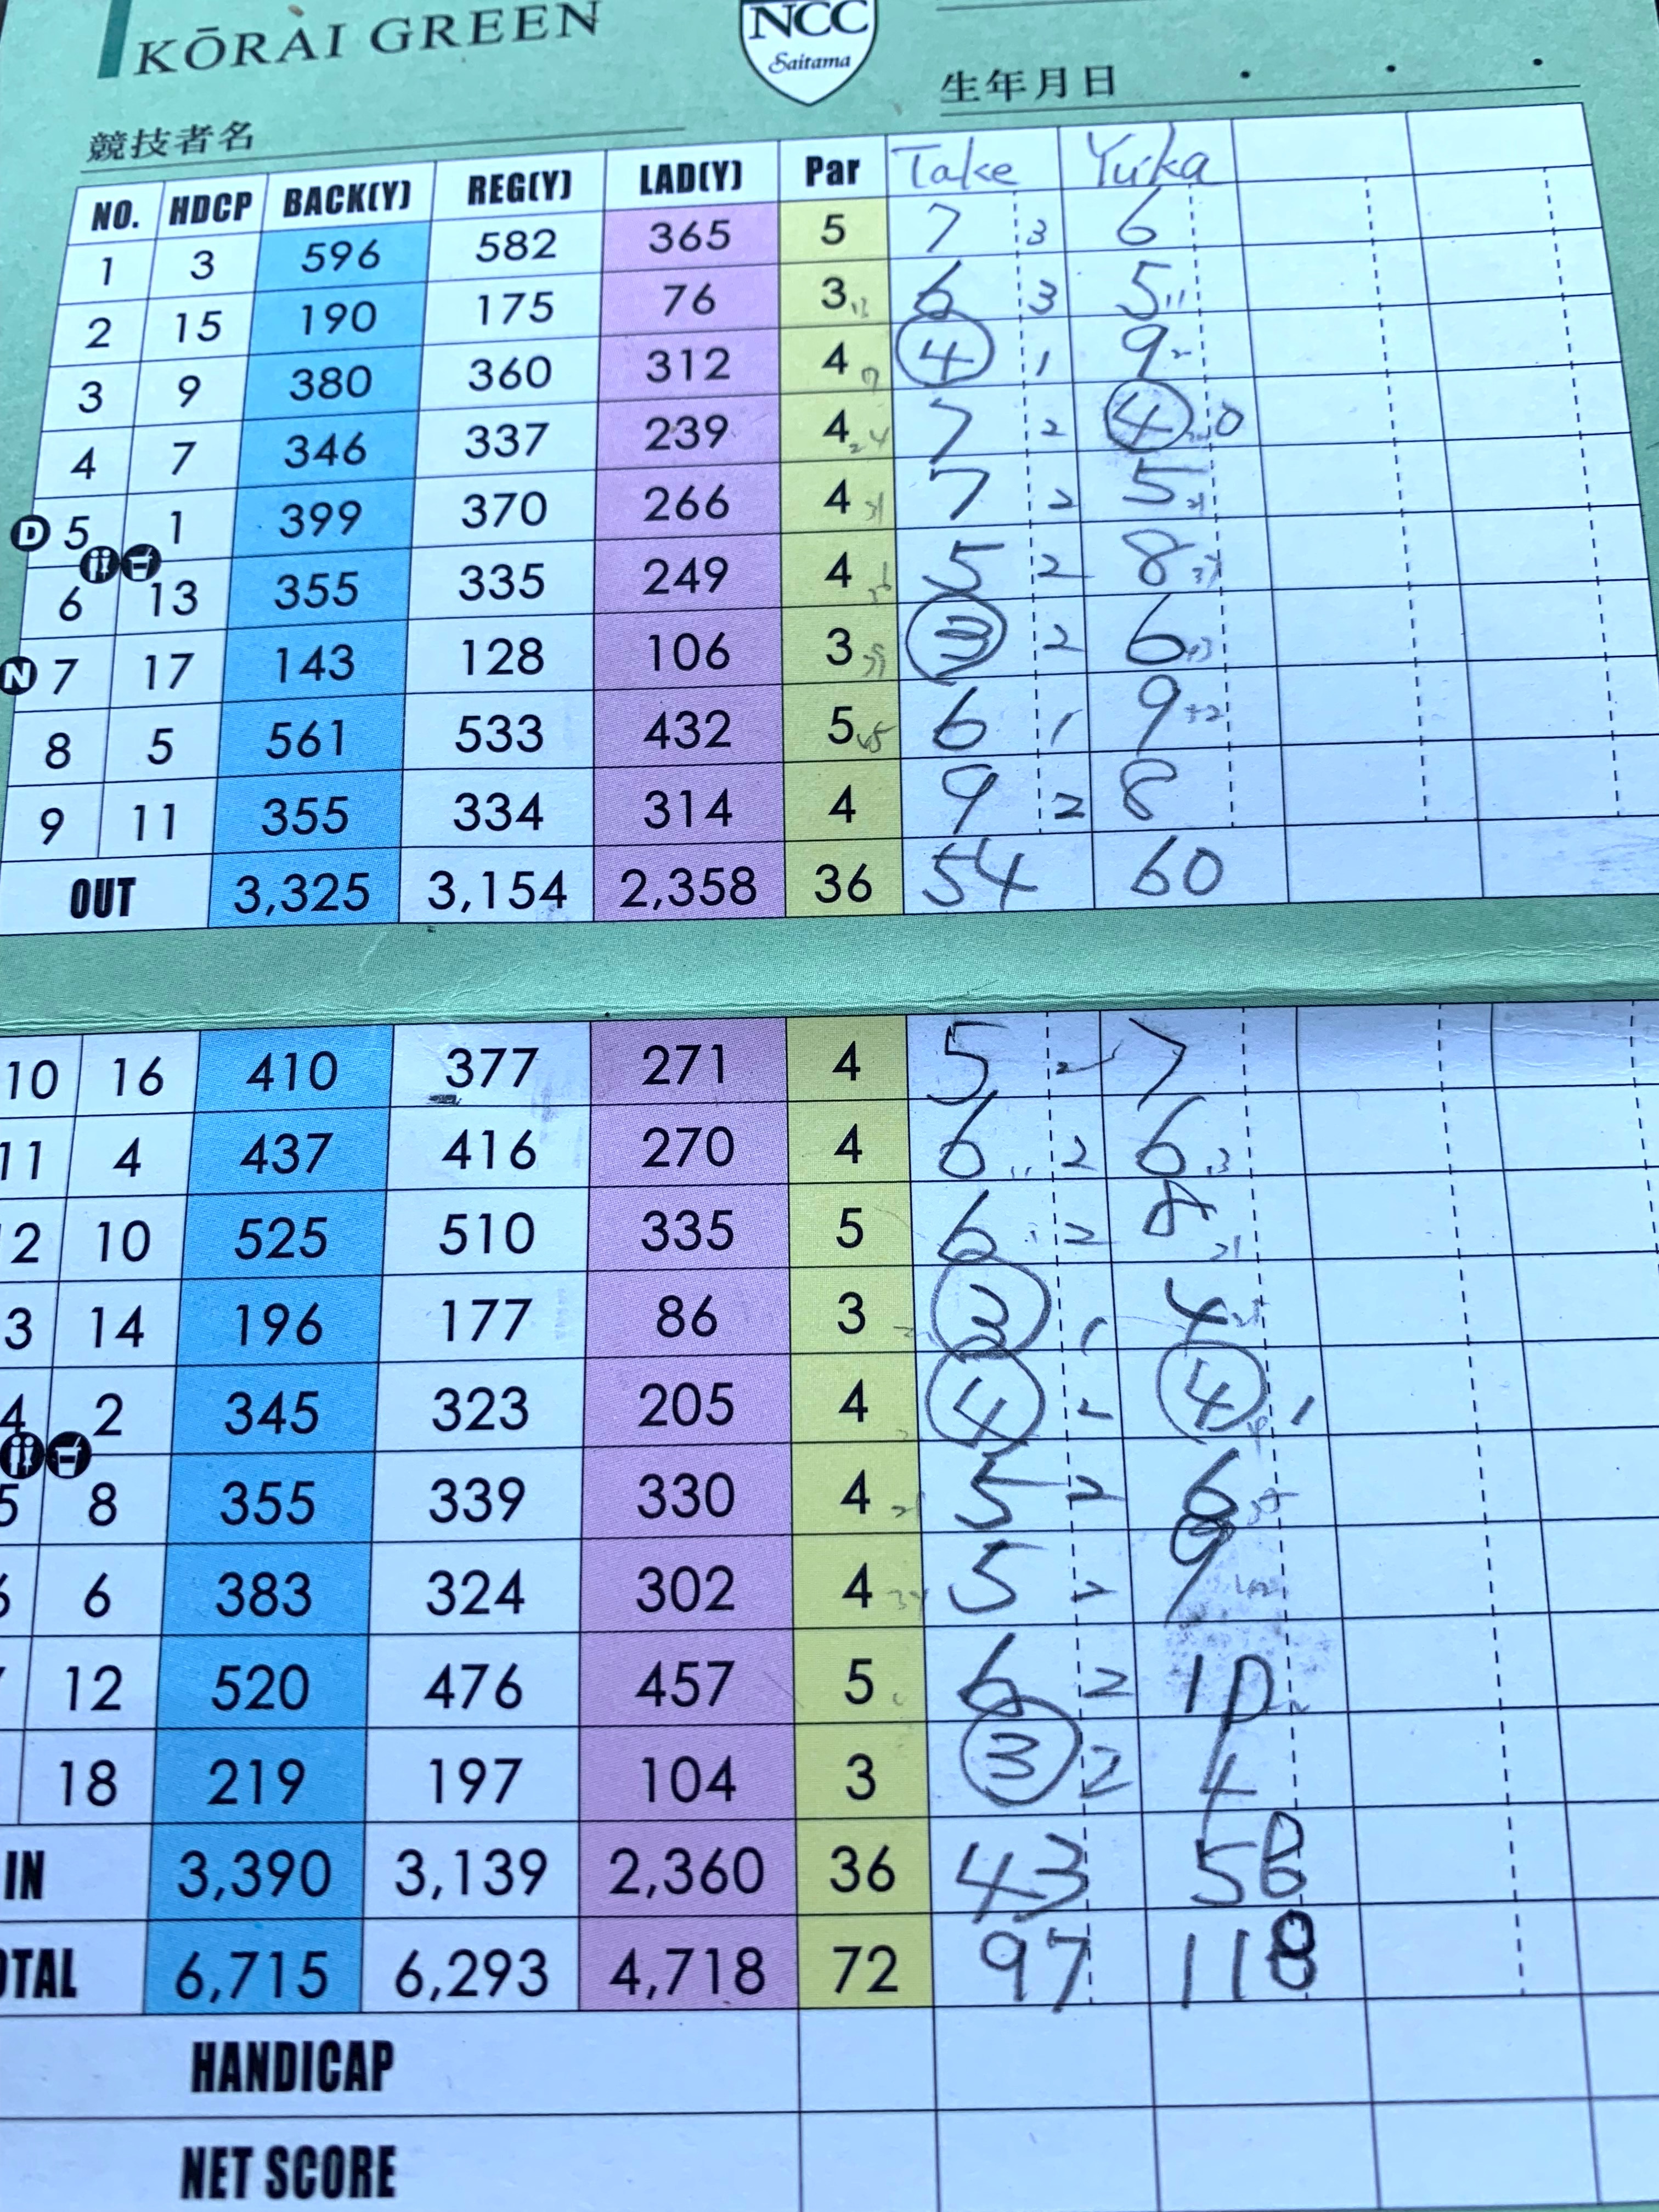 KŌRAI GREEN
NCC
Saitama
生年月日 . . .
競技者名
NO. HDCP BACK(Y) REG(Y) LAD(Y) Par Take Yuka
1 3 596 582 365 5 7 3 6
2 15 190 175 76 3 6 3 5 11
3 9 380 360 312 4 4 1 9
4 7 346 337 239 4 24 7 2 4 0
D 5 1 399 370 266 4 31 7 2 5
6 13 355 335 249 4 5 2 8
N 7 17 143 128 106 3 3 2 6
8 5 561 533 432 5 45 6 1 9
9 11 355 334 314 4 9 2 8
OUT 3,325 3,154 2,358 36 54 60
10 16 410 377 271 4 5 2 7
11 4 437 416 270 4 6 11 2 6 13
2 10 525 510 335 5 6 2 8 21
3 14 196 177 86 3 3 1 4
4 2 345 323 205 4 4 2 4 1
5 8 355 339 330 4 5 2 6
6 6 383 324 302 4 5 2 9
12 520 476 457 5 6 2 10
18 219 197 104 3 3 2 4
IN 3,390 3,139 2,360 36 43 58
OTAL 6,715 6,293 4,718 72 97 118
HANDICAP
NET SCORE